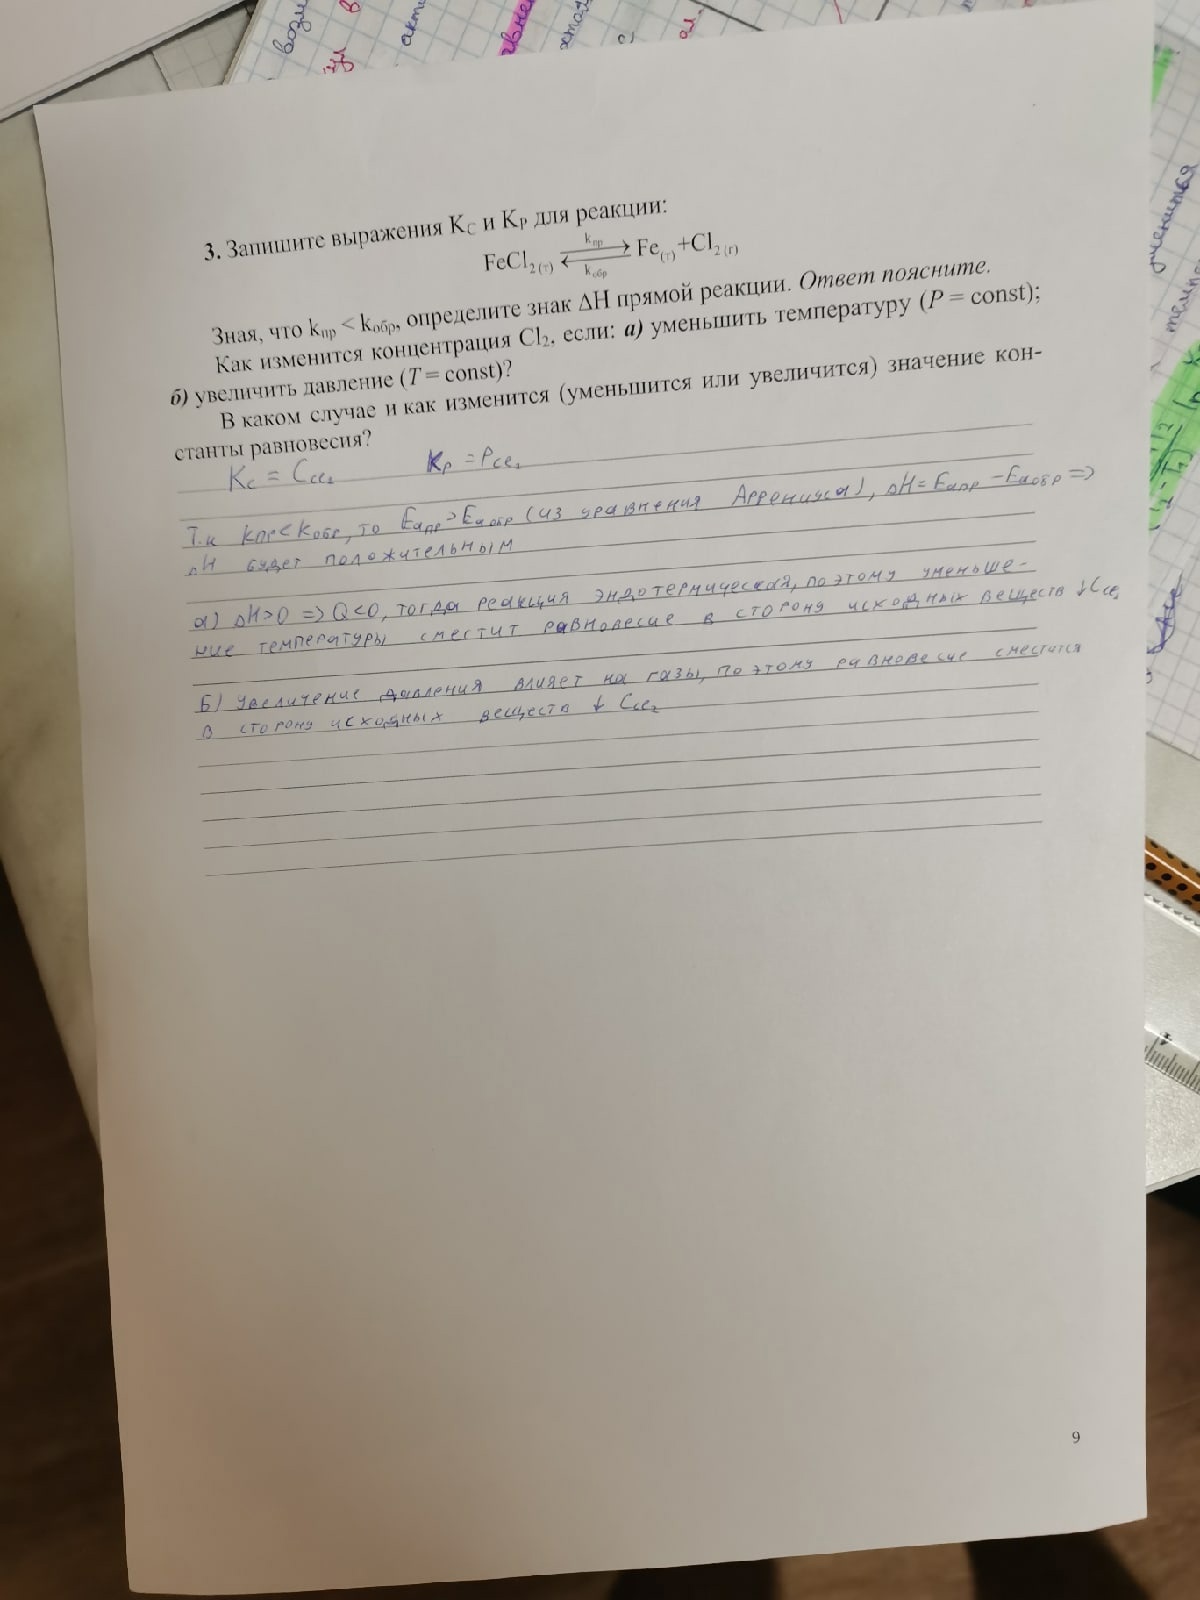 возм
ул
в
акти
вне
хтал
с
ал.
3. Запишите выражения K_C и K_P для реакции:
FeCl₂₍т₎ ⇄ Fe₍т₎+Cl₂₍г₎
k_пр
k_обр
Зная, что k_пр < k_обр, определите знак ΔH прямой реакции. Ответ поясните.
Как изменится концентрация Cl₂, если: а) уменьшить температуру (P = const);
б) увеличить давление (T = const)?
В каком случае и как изменится (уменьшится или увеличится) значение кон-
станты равновесия?
K_C = C_Cl₂ K_P = P_Cl₂
Т.к k_пр<k_обр, то Eа_пр>Eа_обр (из уравнения Аррениуса), ΔH=Eа_пр −Eа_обр =>
ΔH будет положительным
а) ΔH>0 => Q<0, тогда реакция эндотермическая, поэтому уменьше-
ние температуры сместит равновесие в сторону исходных веществ ↓C_Cl₂
Б) Увеличение давления влияет на газы, поэтому равновесие сместится
в сторону исходных веществ ↓ C_Cl₂
9